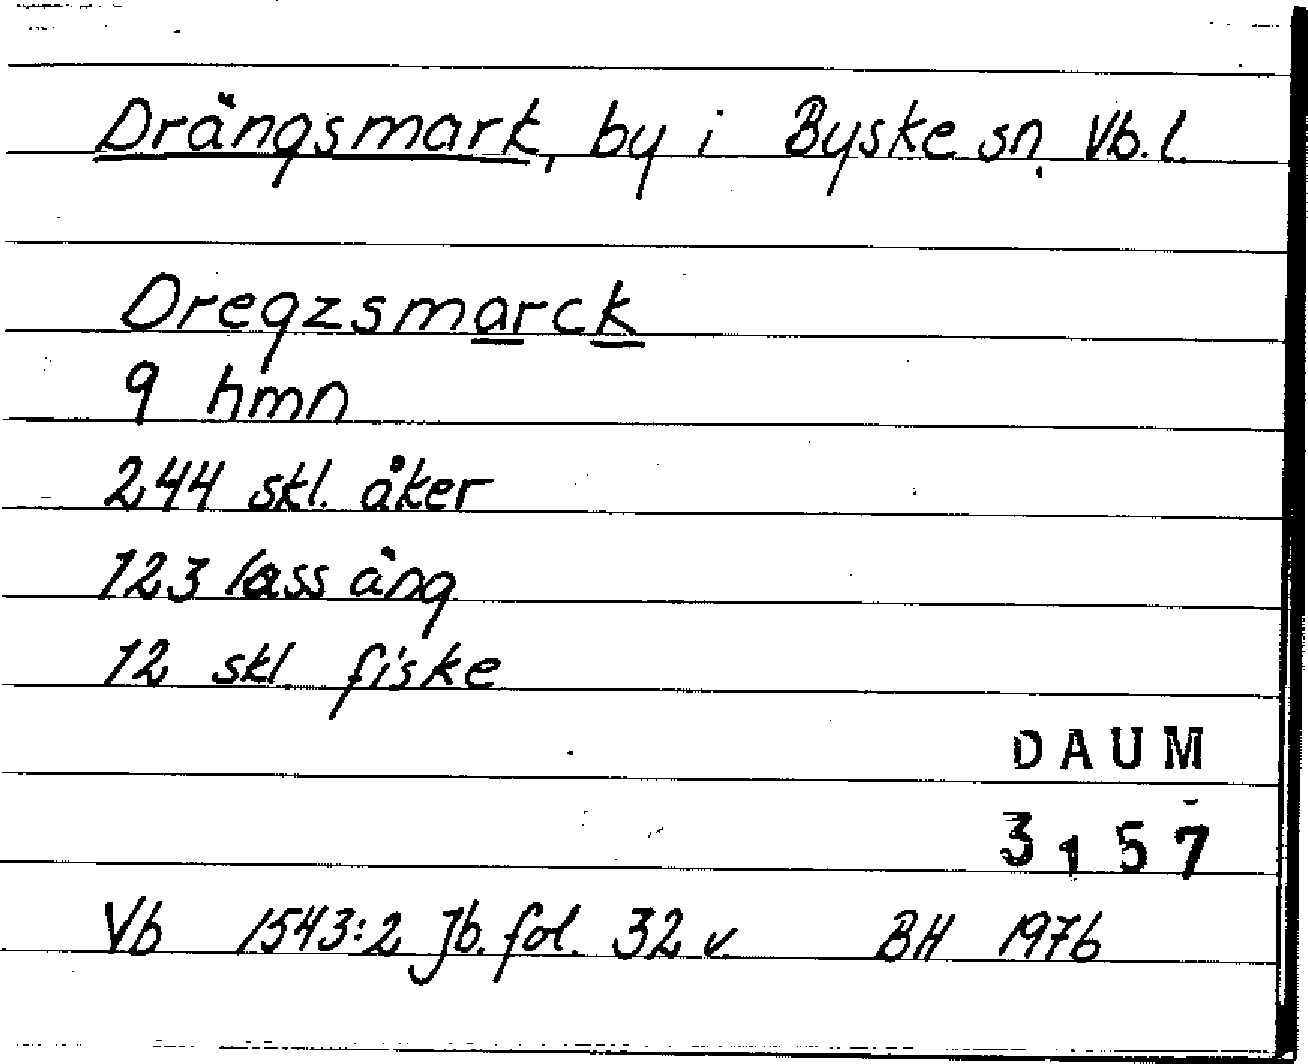 Drängsmark, by i Byske sn. Vb. l.
Dregzsmarck
9 hmn
244 skl. åker
123 lass äng
12 skl fiske
DAUM
3157
Vb 1543:2 Jb. fol. 32 v. BH 1976